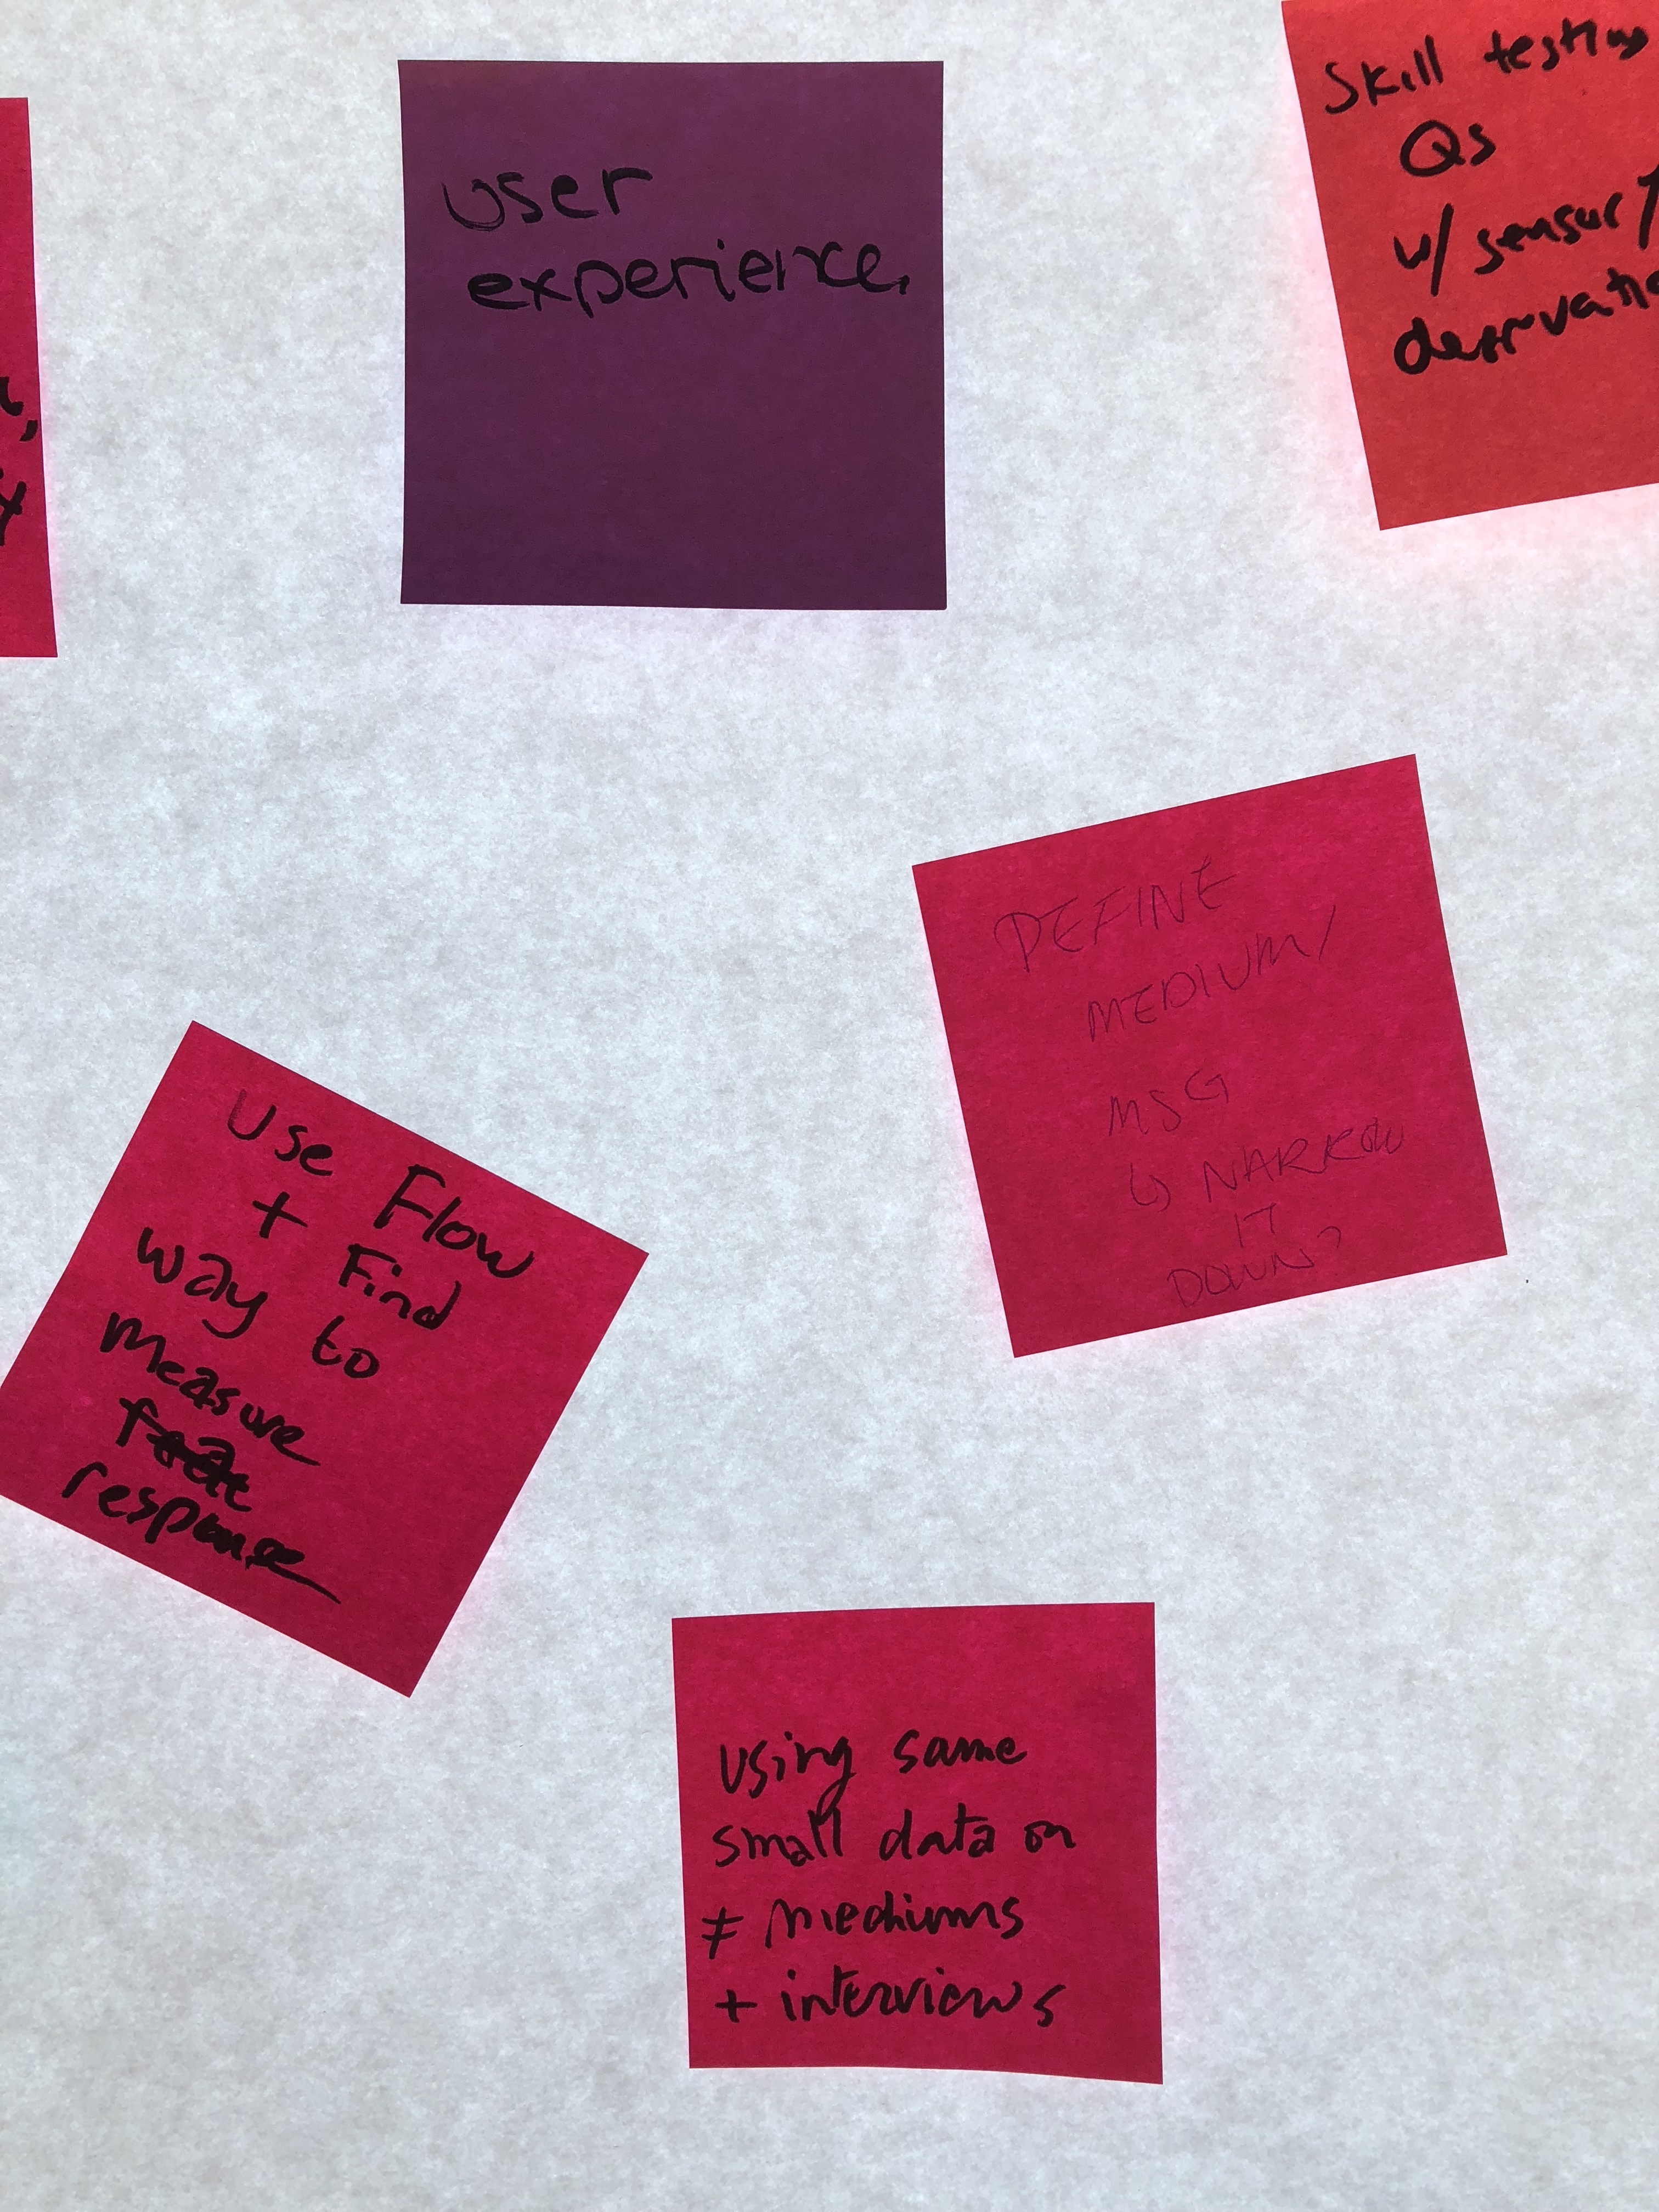 User
experience
Skill testing
Qs
w/ sensory
DEFINE
MEDIUM/
MSG
↳ NARROW
IT
DOWN?
Use Flow
+ Find
way to
measure
response
using same
small data on
≠ mediums
+ interviews